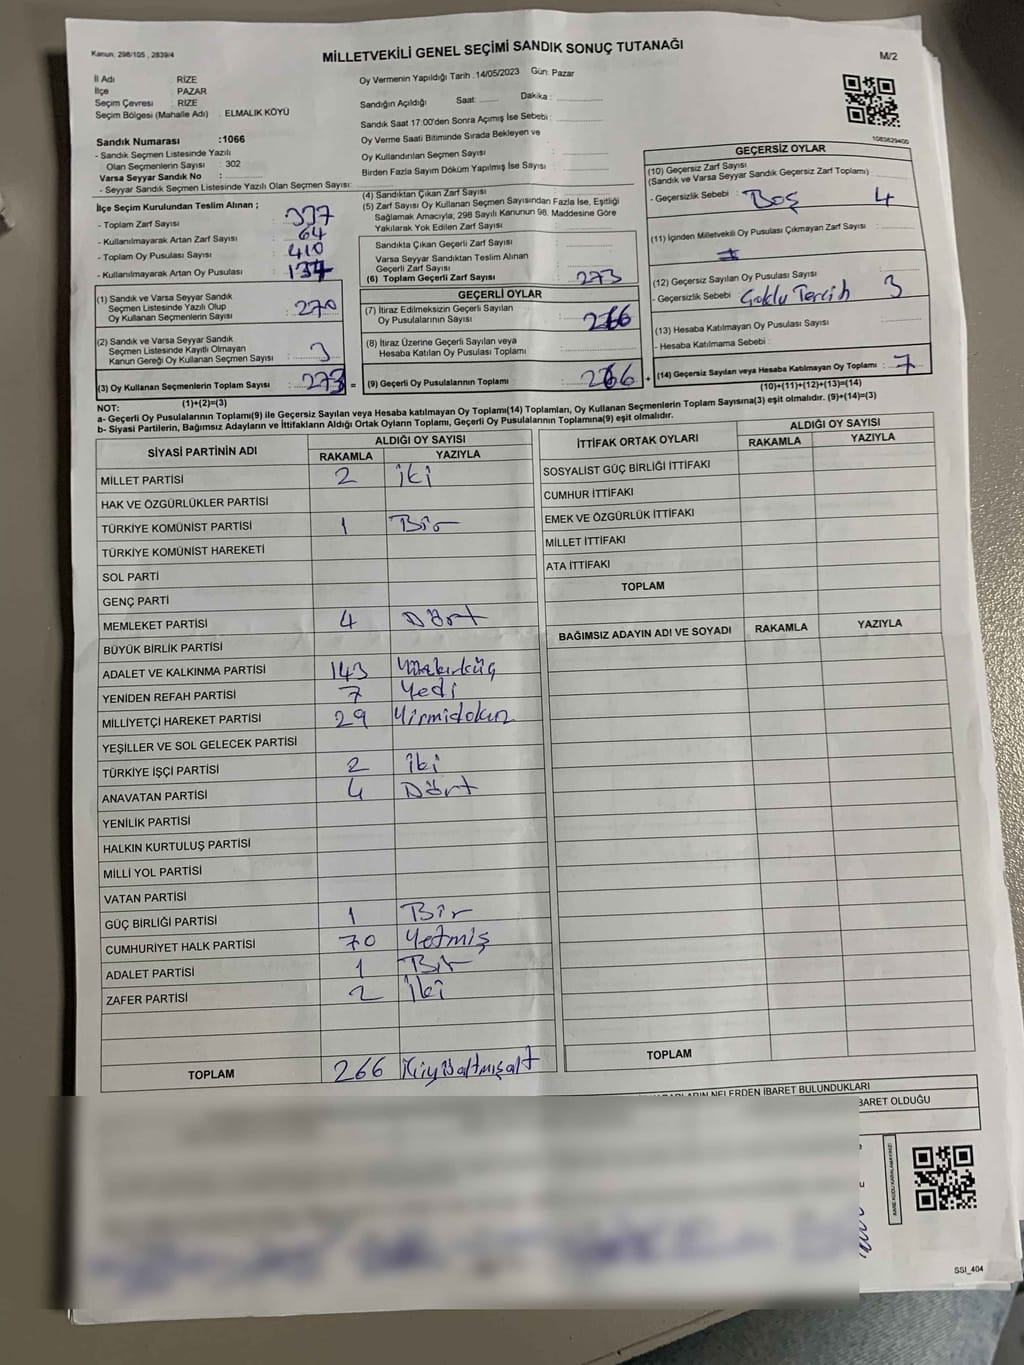 Kanun: 298/105, 2839/4
MİLLETVEKİLİ GENEL SEÇİMİ SANDIK SONUÇ TUTANAĞI
M/2
İl Adı : RİZE
İlçe : PAZAR
Seçim Çevresi : RİZE
Seçim Bölgesi (Mahalle Adı) : ELMALIK KÖYÜ
Sandık Numarası : 1066
- Sandık Seçmen Listesinde Yazılı
Olan Seçmenlerin Sayısı : 302
Varsa Seyyar Sandık No :
- Seyyar Sandık Seçmen Listesinde Yazılı Olan Seçmen Sayısı:
Oy Vermenin Yapıldığı Tarih : 14/05/2023 Gün: Pazar
Sandığın Açıldığı Saat: Dakika :
Sandık Saat 17:00'den Sonra Açımış İse Sebebi :
Oy Verme Saati Bitiminde Sırada Bekleyen ve
Oy Kullandırılan Seçmen Sayısı :
Birden Fazla Sayım Döküm Yapılmış İse Sayısı :
1083629400
İlçe Seçim Kurulundan Teslim Alınan ;
- Toplam Zarf Sayısı : 337
- Kullanılmayarak Artan Zarf Sayısı : 64
- Toplam Oy Pusulası Sayısı : 410
- Kullanılmayarak Artan Oy Pusulası : 137
(1) Sandık ve Varsa Seyyar Sandık
Seçmen Listesinde Yazılı Olup
Oy Kullanan Seçmenlerin Sayısı : 270
(2) Sandık ve Varsa Seyyar Sandık
Seçmen Listesinde Kayıtlı Olmayan
Kanun Gereği Oy Kullanan Seçmen Sayısı : 3
(3) Oy Kullanan Seçmenlerin Toplam Sayısı : 273 =
(1)+(2)=(3)
(4) Sandıktan Çıkan Zarf Sayısı :
(5) Zarf Sayısı Oy Kullanan Seçmen Sayısından Fazla İse, Eşitliği
Sağlamak Amacıyla; 298 Sayılı Kanunun 98. Maddesine Göre
Yakılarak Yok Edilen Zarf Sayısı :
Sandıkta Çıkan Geçerli Zarf Sayısı :
Varsa Seyyar Sandıktan Teslim Alınan
Geçerli Zarf Sayısı :
(6) Toplam Geçerli Zarf Sayısı : 273
GEÇERLİ OYLAR
(7) İtiraz Edilmeksizin Geçerli Sayılan
Oy Pusulalarının Sayısı : 266
(8) İtiraz Üzerine Geçerli Sayılan veya
Hesaba Katılan Oy Pusulası Toplamı :
(9) Geçerli Oy Pusulalarının Toplamı : 266 +
GEÇERSİZ OYLAR
(10) Geçersiz Zarf Sayısı
(Sandık ve Varsa Seyyar Sandık Geçersiz Zarf Toplamı)
- Geçersizlik Sebebi : Boş 4
(11) İçinden Milletvekili Oy Pusulası Çıkmayan Zarf Sayısı :
(12) Geçersiz Sayılan Oy Pusulası Sayısı
- Geçersizlik Sebebi : Çoklu Tercih 3
(13) Hesaba Katılmayan Oy Pusulası Sayısı :
- Hesaba Katılmama Sebebi :
(14) Geçersiz Sayılan veya Hesaba Katılmayan Oy Toplamı : 7
(10)+(11)+(12)+(13)=(14)
NOT:
a- Geçerli Oy Pusulalarının Toplamı(9) ile Geçersiz Sayılan veya Hesaba katılmayan Oy Toplamı(14) Toplamları, Oy Kullanan Seçmenlerin Toplam Sayısına(3) eşit olmalıdır. (9)+(14)=(3)
b- Siyasi Partilerin, Bağımsız Adayların ve İttifakların Aldığı Ortak Oyların Toplamı, Geçerli Oy Pusulalarının Toplamına(9) eşit olmalıdır.
SİYASİ PARTİNİN ADI
ALDIĞI OY SAYISI
RAKAMLA YAZIYLA
MİLLET PARTİSİ 2 iki
HAK VE ÖZGÜRLÜKLER PARTİSİ
TÜRKİYE KOMÜNİST PARTİSİ 1 Bir
TÜRKİYE KOMÜNİST HAREKETİ
SOL PARTİ
GENÇ PARTİ
MEMLEKET PARTİSİ 4 Dört
BÜYÜK BİRLİK PARTİSİ
ADALET VE KALKINMA PARTİSİ 143 Yüzkırküç
YENİDEN REFAH PARTİSİ 7 Yedi
MİLLİYETÇİ HAREKET PARTİSİ 29 Yirmidokuz
YEŞİLLER VE SOL GELECEK PARTİSİ
TÜRKİYE İŞÇİ PARTİSİ 2 iki
ANAVATAN PARTİSİ 4 Dört
YENİLİK PARTİSİ
HALKIN KURTULUŞ PARTİSİ
MİLLİ YOL PARTİSİ
VATAN PARTİSİ
GÜÇ BİRLİĞİ PARTİSİ 1 Bir
CUMHURİYET HALK PARTİSİ 70 Yetmiş
ADALET PARTİSİ 1 Bir
ZAFER PARTİSİ 2 iki
TOPLAM 266 ikiyüzaltmışaltı
İTTİFAK ORTAK OYLARI
ALDIĞI OY SAYISI
RAKAMLA YAZIYLA
SOSYALİST GÜÇ BİRLİĞİ İTTİFAKI
CUMHUR İTTİFAKI
EMEK VE ÖZGÜRLÜK İTTİFAKI
MİLLET İTTİFAKI
ATA İTTİFAKI
TOPLAM
BAĞIMSIZ ADAYIN ADI VE SOYADI RAKAMLA YAZIYLA
TOPLAM
NELERDEN İBARET BULUNDUKLARI
BARET OLDUĞU
KARE KODU KARALAMAYINIZ!
SSI_404